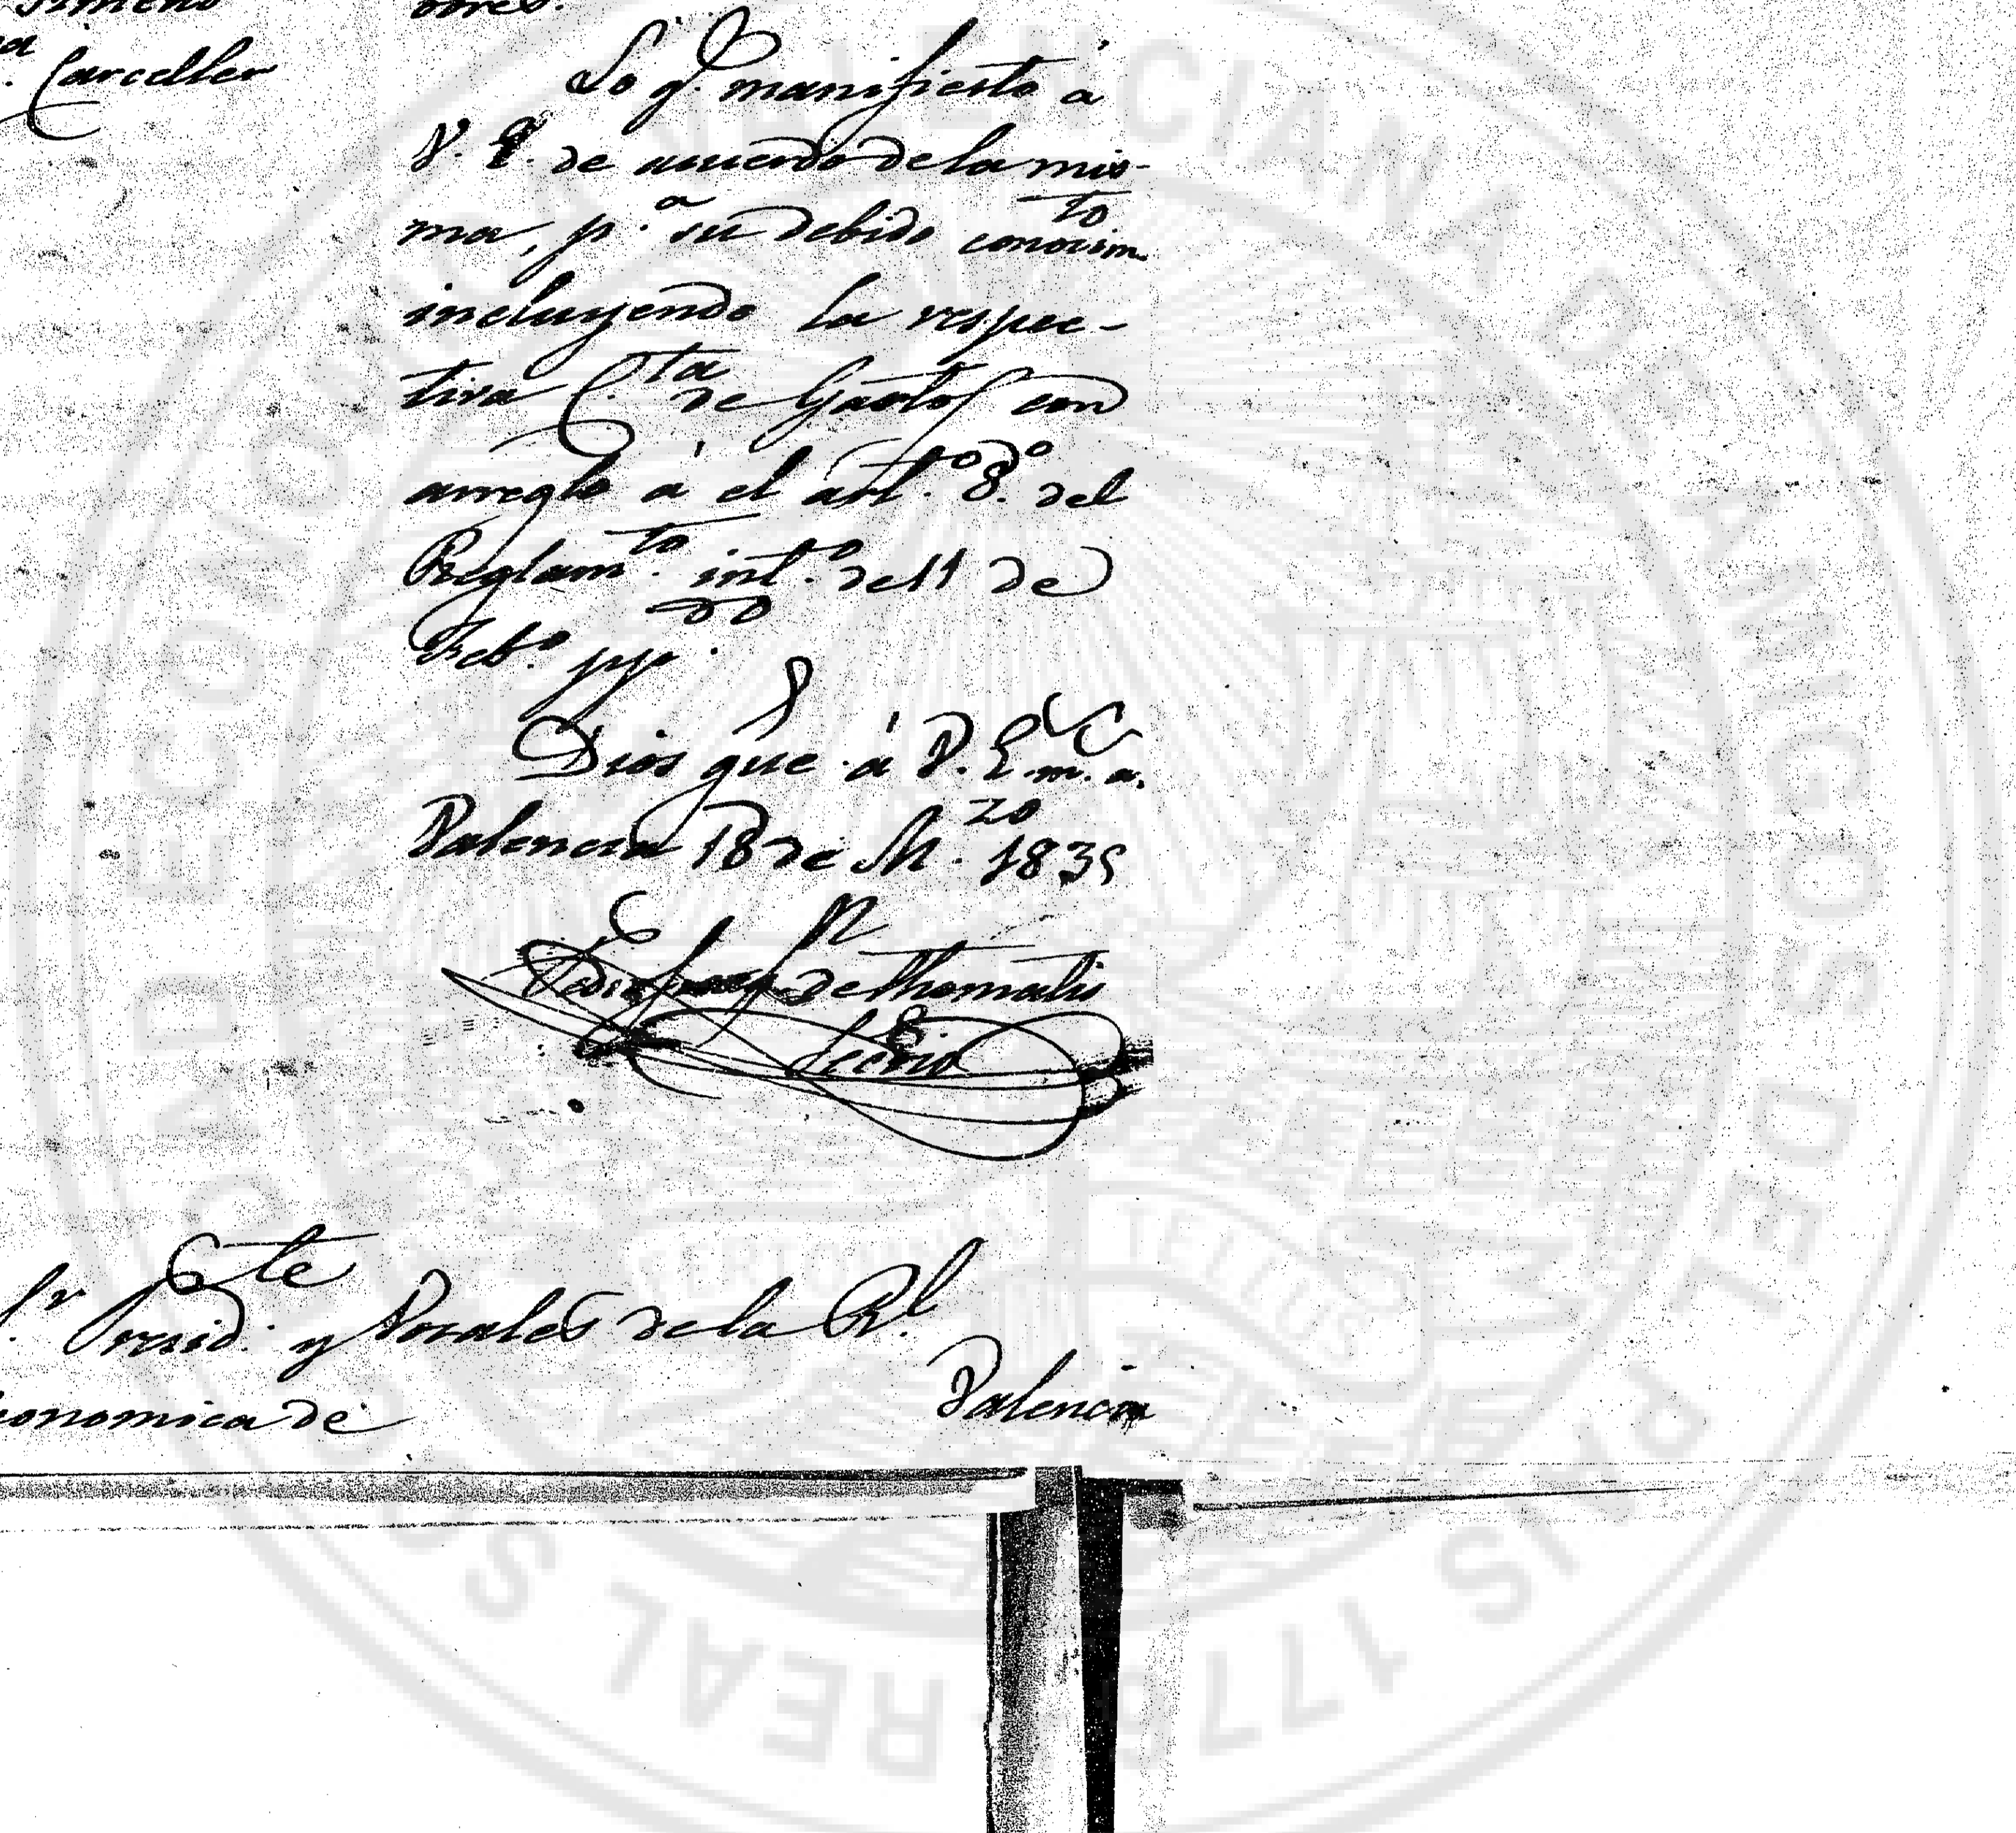 Carceller
Lo q.e manifiesto á
V. E. de acuerdo de la mis-
ma, p.a su debido conocim.to
incluyendo la respec-
tiva C.ta de Gastos con
arreglo á el art.o 8.o del
Reglam.to int.o de 11 de
Feb.o pp.do
Dios gue á V. E. m. a.
Valencia 18 de M.zo 1835
de Thomatis
Secrio
Sr Presid.te y Vocales de la Rl.
conomica de Valencia
REAL SOCIEDAD ECONOMICA VALENCIANA DE AMIGOS DEL PAIS 1776